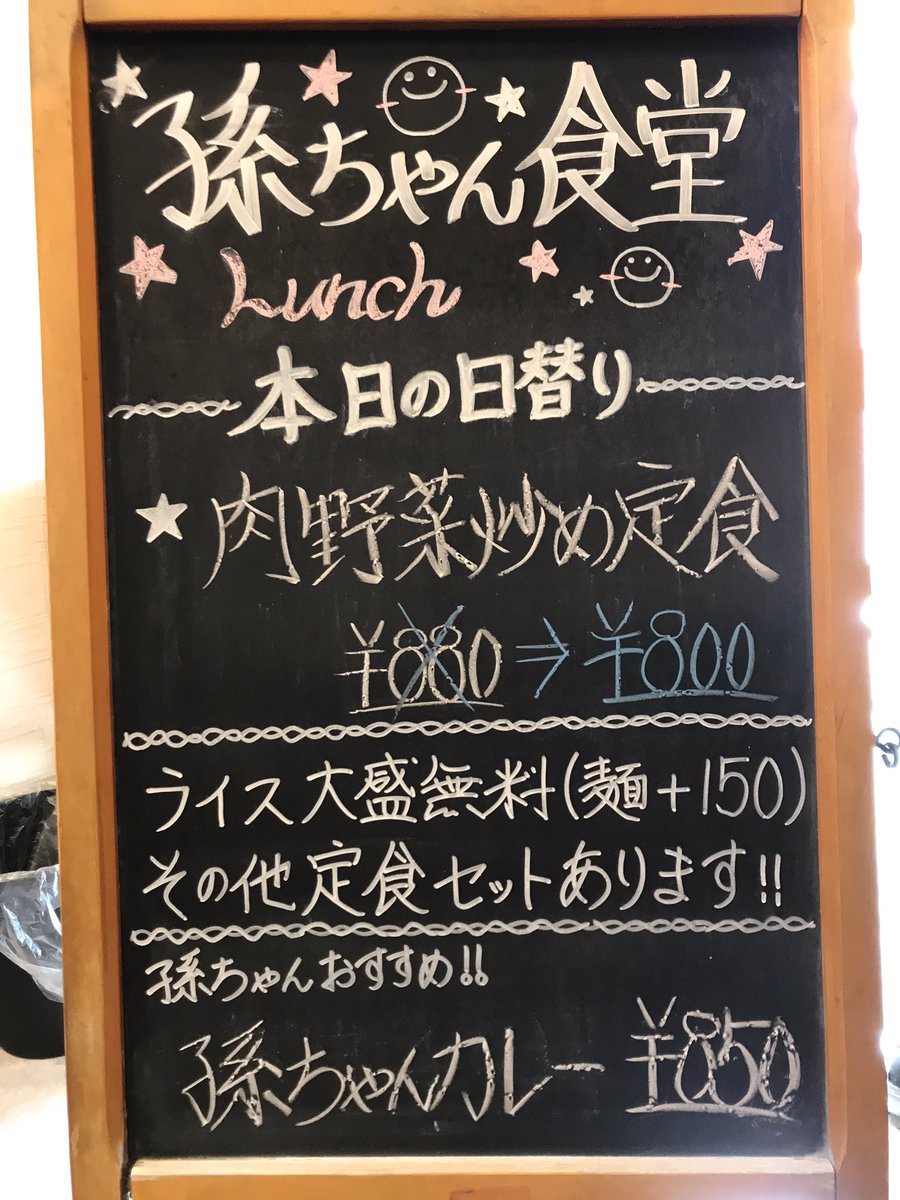 孫ちゃん食堂
Lunch
本日の日替り
肉野菜炒め定食
¥880→¥800
ライス大盛無料(麺+150)
その他定食セットあります!!
孫ちゃんおすすめ!!
孫ちゃんカレー ¥850